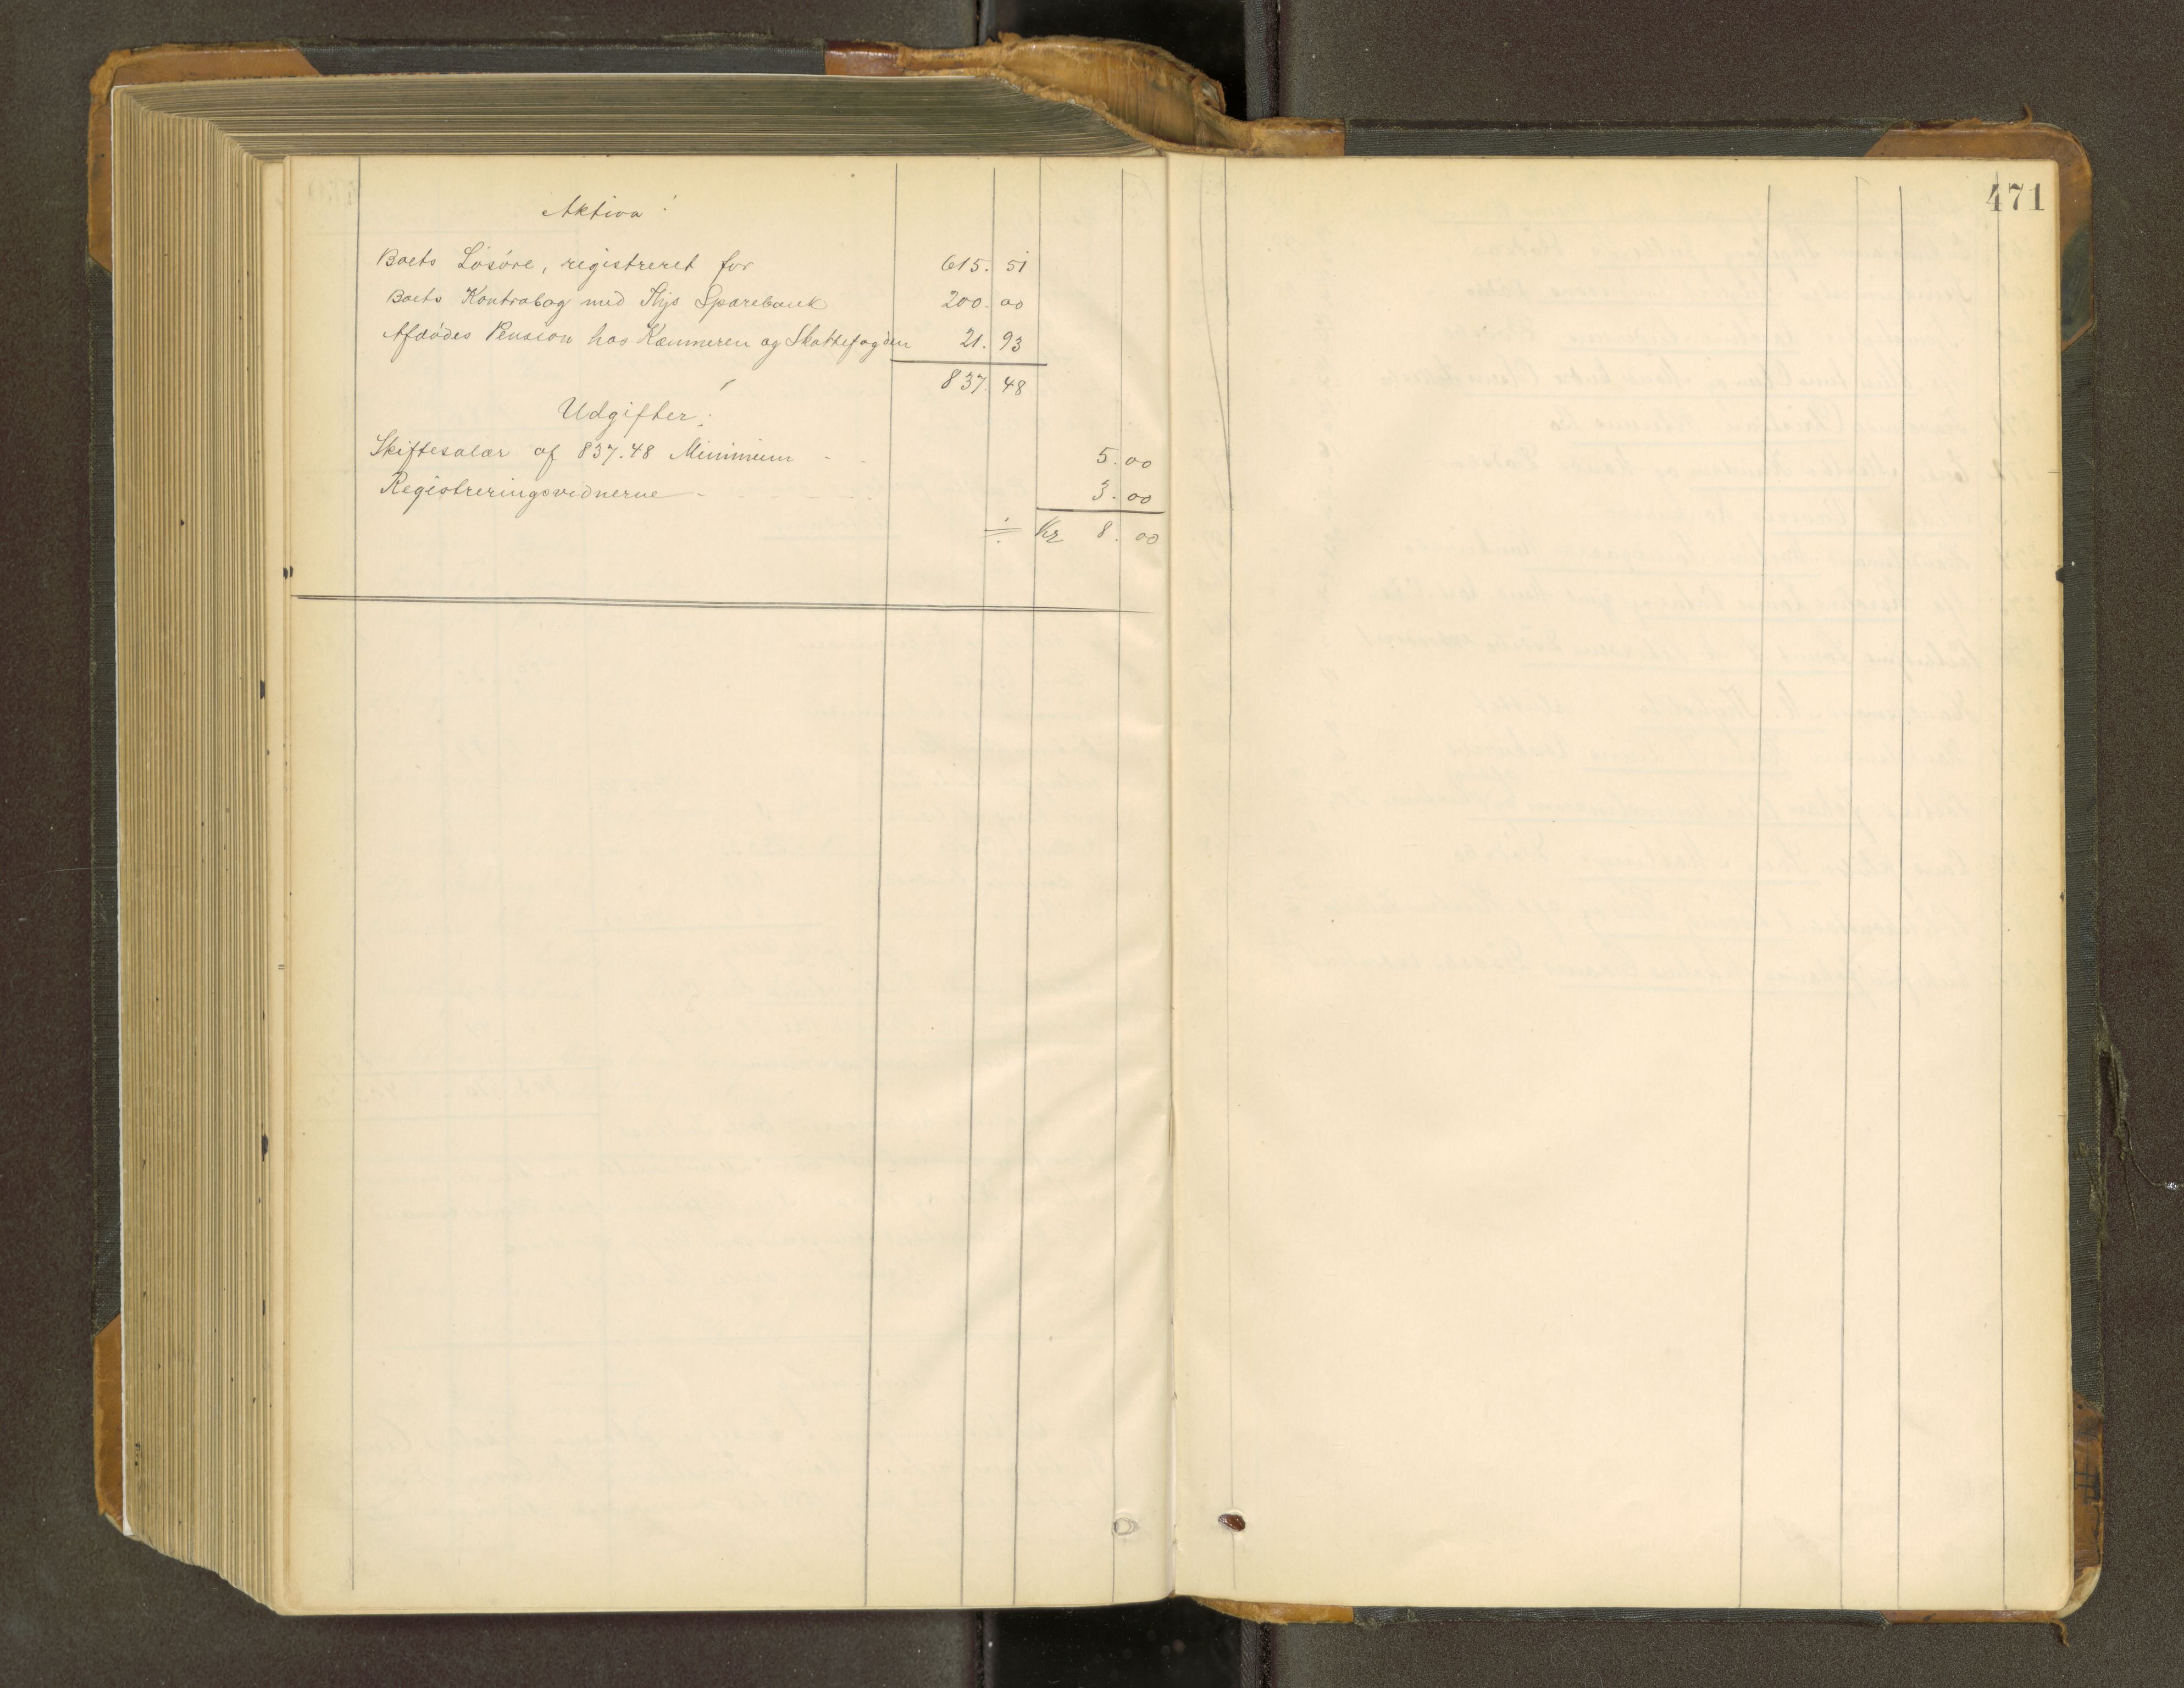 Aktiva:
Boets Løsøre, registreret for 615. 51
Boets Kontrabog med Thjs Sparebank 200. 00
Afdødes Pension hos Kæmneren og Skattefogden 21. 93
837. 48
Udgifter:
Skiftesalær af 837.48 Minimum - - 5. 00
Registreringsvidnerne - 3. 00
÷ Kr 8. 00
471